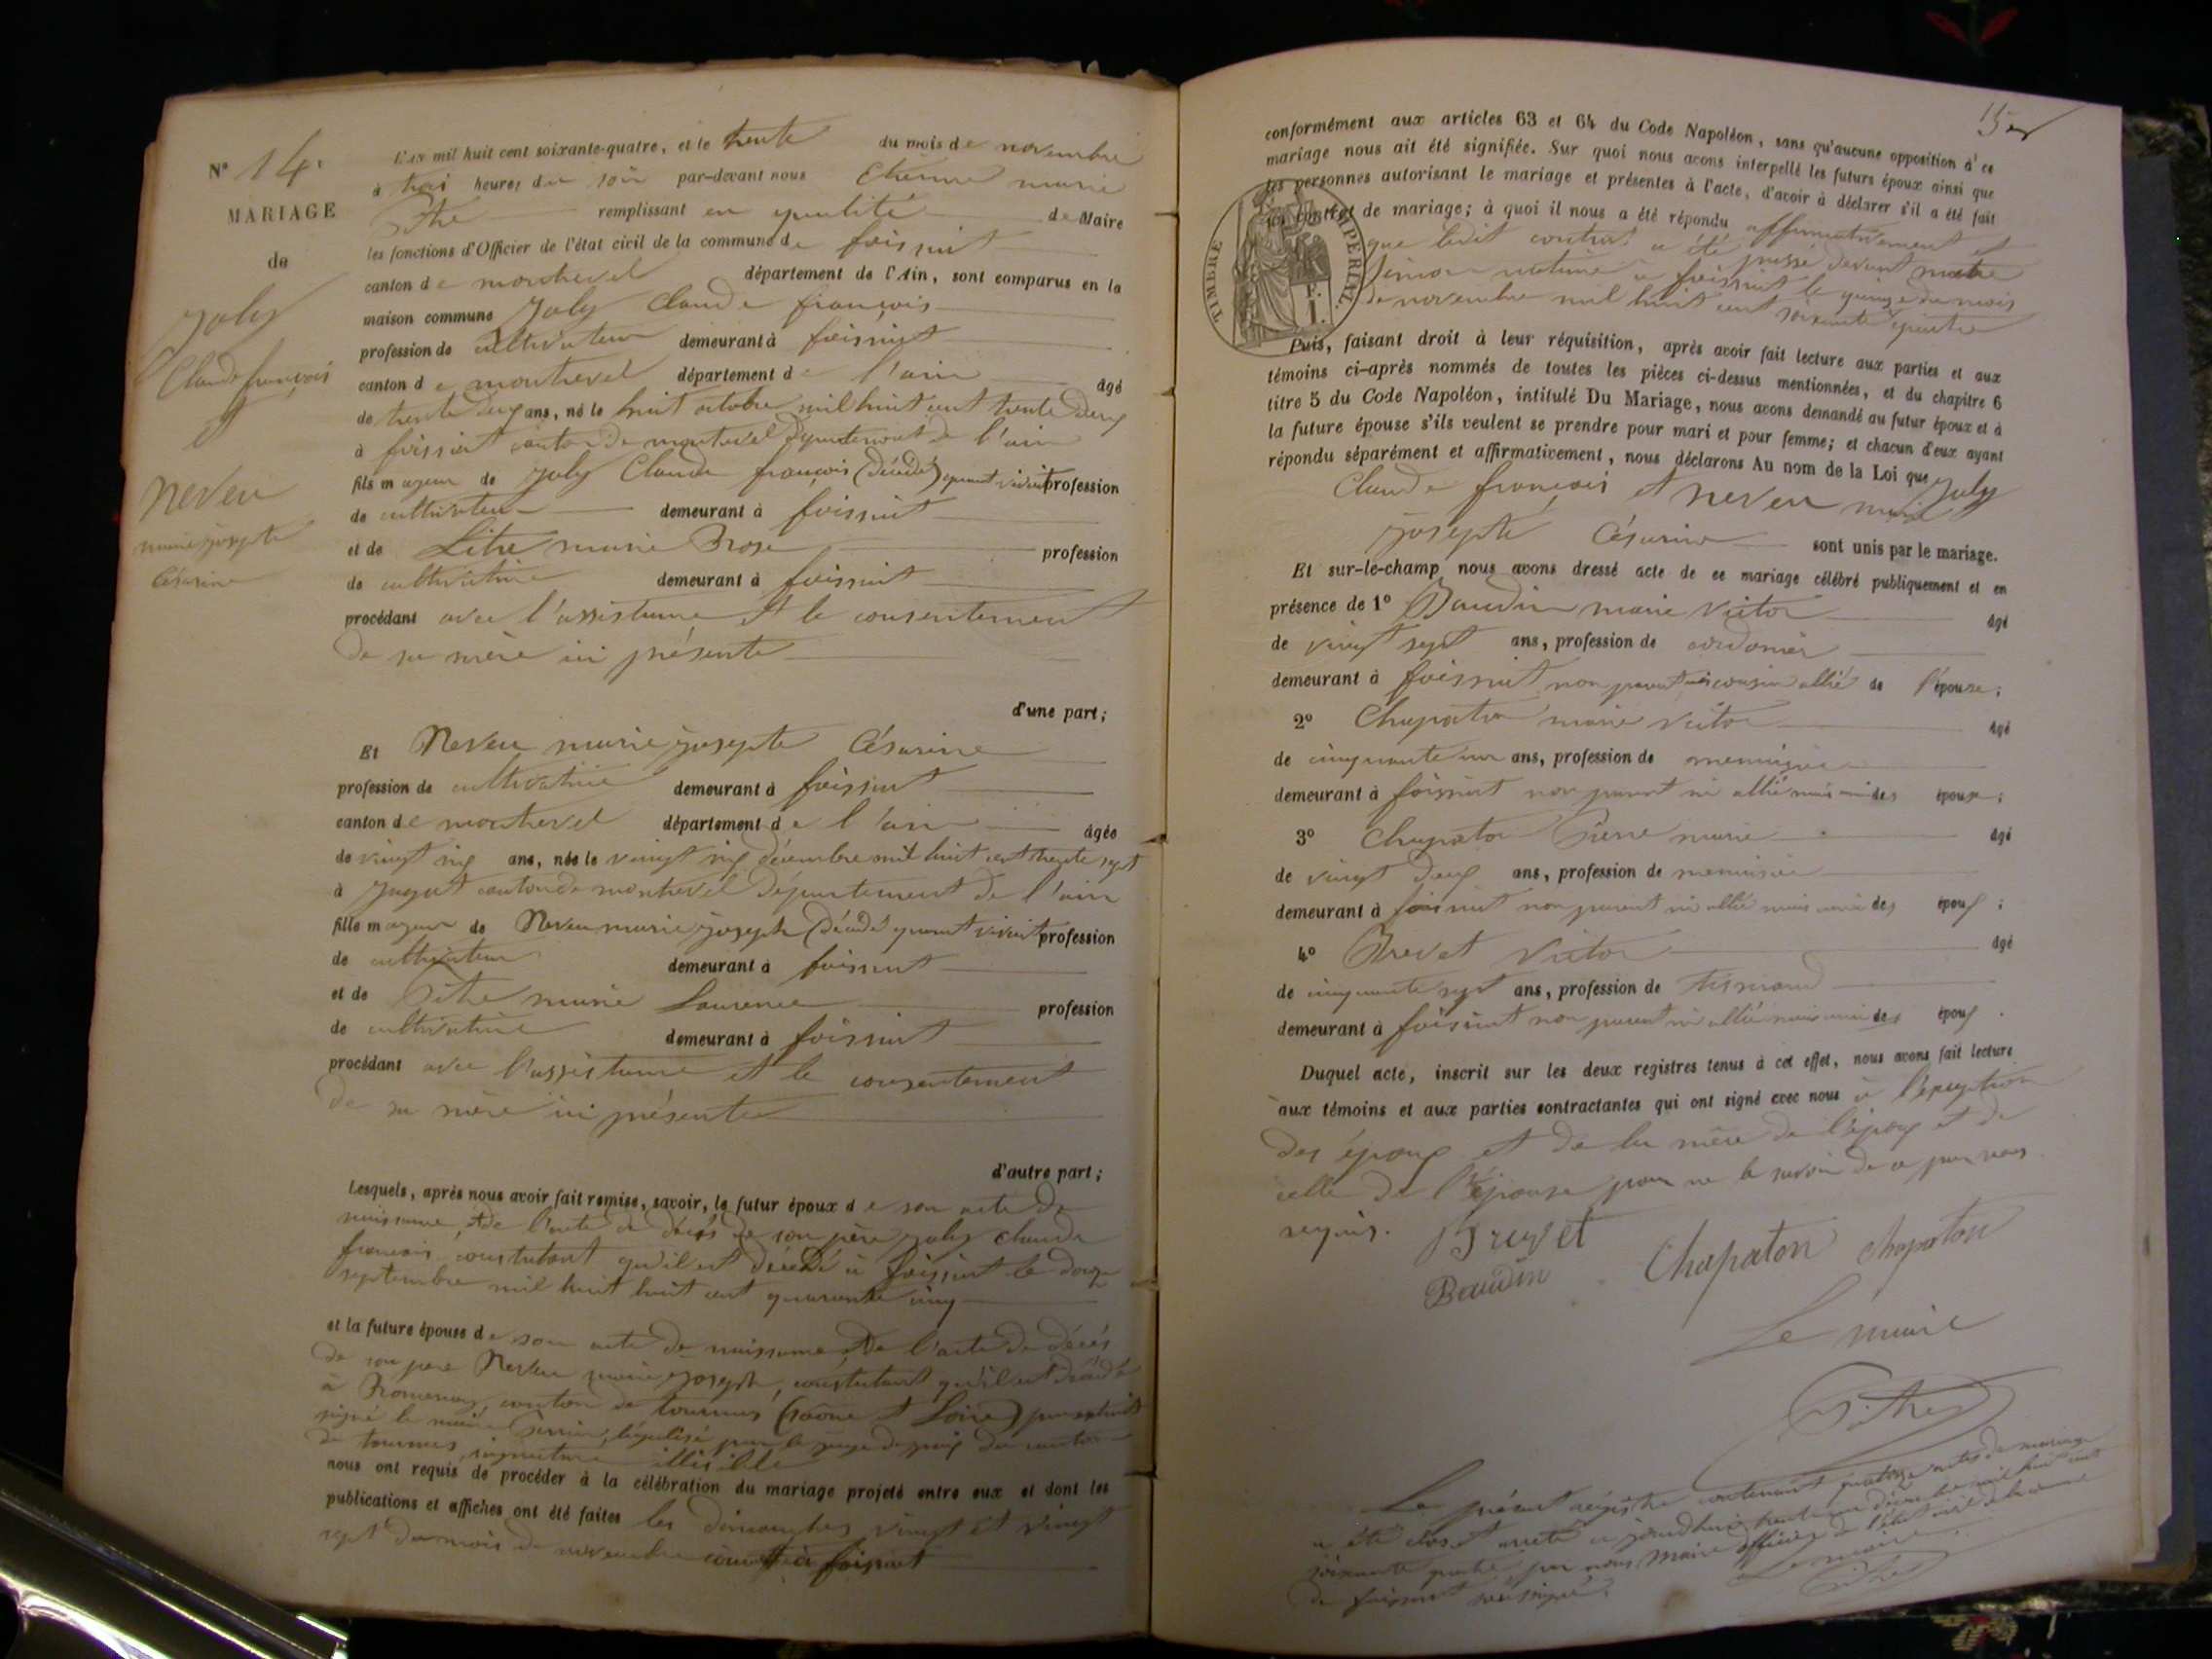 N° 14.
MARIAGE
de
Joly
Claude françois
et
Neveu
marie josephte
Césarine
L'AN mil huit cent soixante-quatre, et le trente du mois de novembre
à trois heures du soir par-devant nous Etienne marie
Pithe remplissant en qualité de Maire
les fonctions d'Officier de l'état civil de la commune de foissiat
canton de montrevel département de l'Ain, sont comparus en la
maison commune Joly Claude françois
profession de cultivateur demeurant à foissiat
canton de montrevel département de l'ain âgé
de trente deux ans, né le huit octobre mil huit cent trente deux
à foissiat canton de montrevel département de l'ain
fils majeur de Joly Claude françois (décédé) quant vivait profession
de cultivateur demeurant à foissiat
et de Litre marie Rose profession
de cultivatrice demeurant à foissiat
procédant avec l'assistance et le consentement
de sa mère ici présente
d'une part;
Et Neveu marie josephte Césarine
profession de cultivatrice demeurant à foissiat
canton de montrevel département de l'ain âgée
de vingt six ans, née le vingt six décembre mil huit cent trente sept
à Jayat canton de montrevel département de l'ain
fille majeur de Neveu marie joseph (décédé quant vivait profession
de cultivateur demeurant à foissiat
et de Pithe marie Laurence profession
de cultivatrice demeurant à foissiat
procédant avec l'assistance et le consentement
de sa mère ici présente
d'autre part;
Lesquels, après nous avoir fait remise, savoir, le futur époux de son acte de
naissance, et de l'acte de décès de son père joly claude
françois constatant qu'il est décédé à foissiat le douze
septembre mil huit huit cent quarante cinq
et la future épouse de son acte de naissance et de l'acte de décès
de son père Neveu marie joseph, constatant qu'il est décédé
à Romenay, canton de tournus (saône et Loire) par extrait
signé le maire légalisé par le juge de paix du canton
de tournus, signature illisible
nous ont requis de procéder à la célébration du mariage projeté entre eux et dont les
publications et affiches ont été faites les dimanches vingt et vingt
sept du mois de novembre courant à foissiat
conformément aux articles 63 et 64 du Code Napoléon, sans qu'aucune opposition à ce
mariage nous ait été signifiée. Sur quoi nous avons interpellé les futurs époux ainsi que
les personnes autorisant le mariage et présentes à l'acte, d'avoir à déclarer s'il a été fait
un contrat de mariage; à quoi il nous a été répondu affirmativement et
que ledit contrat a été passé devant maitre
notaire à foissiat le quinze du mois
de novembre mil huit cent soixante quatre
TIMBRE IMPERIAL
1 F.
Puis, faisant droit à leur réquisition, après avoir fait lecture aux parties et aux
témoins ci-après nommés de toutes les pièces ci-dessus mentionnées, et du chapitre 6
titre 5 du Code Napoléon, intitulé Du Mariage, nous avons demandé au futur époux et à
la future épouse s'ils veulent se prendre pour mari et pour femme; et chacun d'eux ayant
répondu séparément et affirmativement, nous déclarons Au nom de la Loi que Joly
Claude françois et Neveu marie
josephte Césarine sont unis par le mariage.
Et sur-le-champ nous avons dressé acte de ce mariage célébré publiquement et en
présence de 1° Baudin marie victor âgé
de vingt sept ans, profession de cordonier
demeurant à foissiat non parent mais cousin allié de l'épouse;
2° Chapaton marie victor âgé
de cinquante un ans, profession de menuisier
demeurant à foissiat non parent ni allié mais ami des époux;
3° Chapaton Pierre marie âgé
de vingt deux ans, profession de menuisier
demeurant à foissiat non parent ni allié mais ami des époux;
4° Brevet Victor âgé
de cinquante sept ans, profession de tisserand
demeurant à foissiat non parent ni allié mais ami des époux.
Duquel acte, inscrit sur les deux registres tenus à cet effet, nous avons fait lecture
aux témoins et aux parties contractantes qui ont signé avec nous à l'exception
des époux et de la mère de l'époux et de
celle de l'épouse pour ne le savoir de ce par nous
requis. Brevet
Baudin Chapaton chapaton
Le maire
Pithe
Le présent régistre contenant quatorze actes de mariage
a été clos et arrêté ce jourd'hui trente un décembre mil huit cent
soixante quatre, par nous Maire officier de l'état civil de la commune
de foissiat soussigné.
Le maire
Pithe